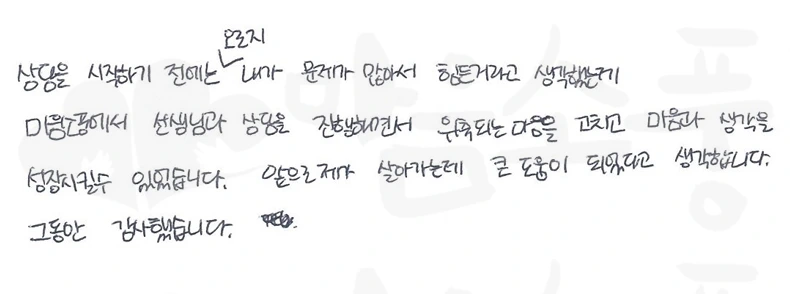 상담을 시작하기 전에는 오로지 내가 문제가 많아서 힘든거라고 생각했는데
마음소풍에서 선생님과 상담을 진행해면서 위축되는 마음을 고치고 마음과 생각을
성장시킬수 있었습니다. 앞으로 제가 살아가는데 큰 도움이 되었다고 생각합니다.
그동안 감사했습니다.
마음소풍